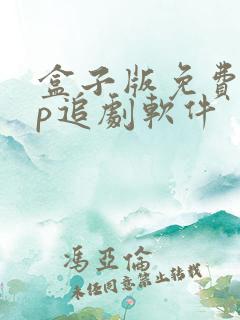 盒子版免費
p追劇軟件
馮亞倫
未經同意禁止轉載